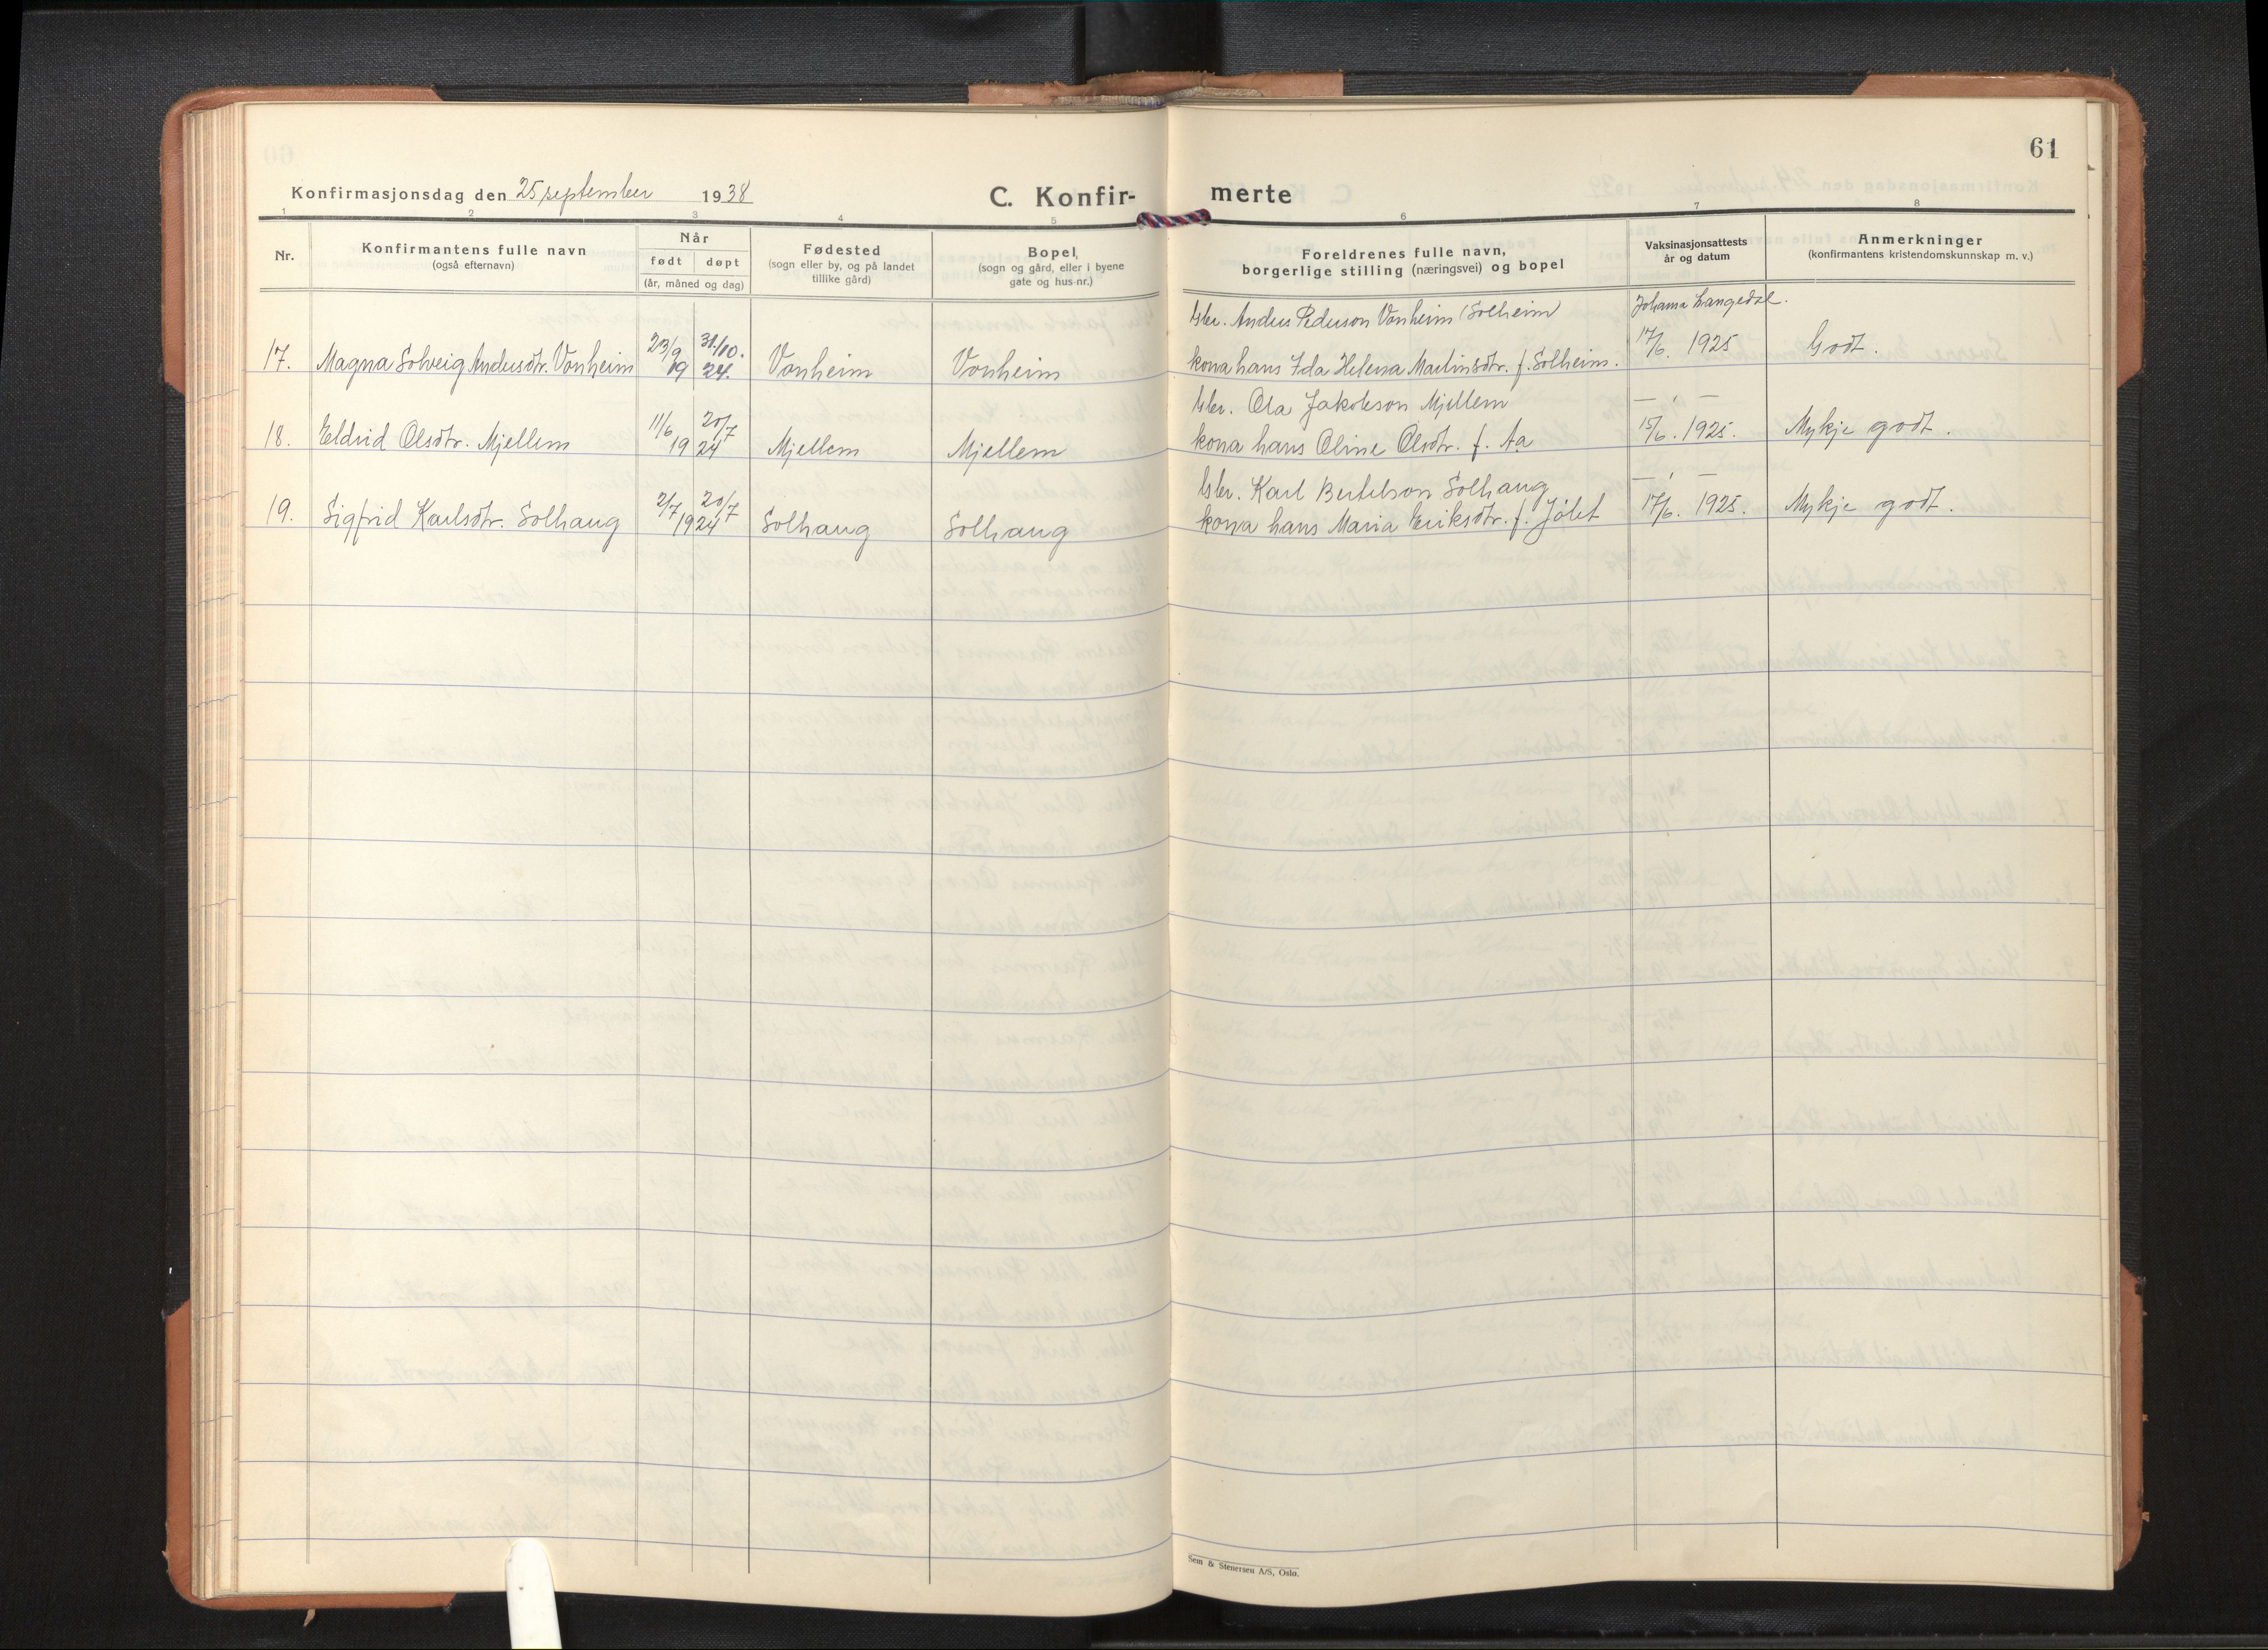 61
Konfirmasjonsdag den 25 september 1938
C. Konfir-merte
1 2 3 4 5 6 7 8
Nr.
Konfirmantens fulle navn
(også efternavn)
Når
født døpt
(år, måned og dag)
Fødested
(sogn eller by, og på landet
tillike gård)
Bopel,
(sogn og gård, eller i byene
gate og hus-nr.)
Foreldrenes fulle navn,
borgerlige stilling (næringsvei) og bopel
Vaksinasjonsattests
år og datum
Anmerkninger
(konfirmantens kristendomskunnskap m. v.)
Gbr. Anders Pederson Vonheim (Solheim) Johanna Langedal.
17. Magna Solveig Andersdtr. Vonheim 23/9 31./10. 19 24. Vonheim Vonheim kona hans Ida Helena Martinsdtr. f. Solheim. 17/6. 1925 Godt.
Gbr. Ola Jakobson Mjellem — „ —
18. Eldrid Olsdtr. Mjellem 11/6 20/7 19 24 Mjellem Mjellem kona hans Oline Olsdtr. f. Aa 15/6. 1925. Mykje godt.
Gbr. Karl Bertelson Solhaug — „ —
19. Sigfrid Karlsdtr. Solhaug 2/7 20/7 19 24 Solhaug Solhaug kona hans Maria Eriksdtr. f. Jølet 17/6. 1925. Mykje godt.
Sem & Stenersen A/S, Oslo.